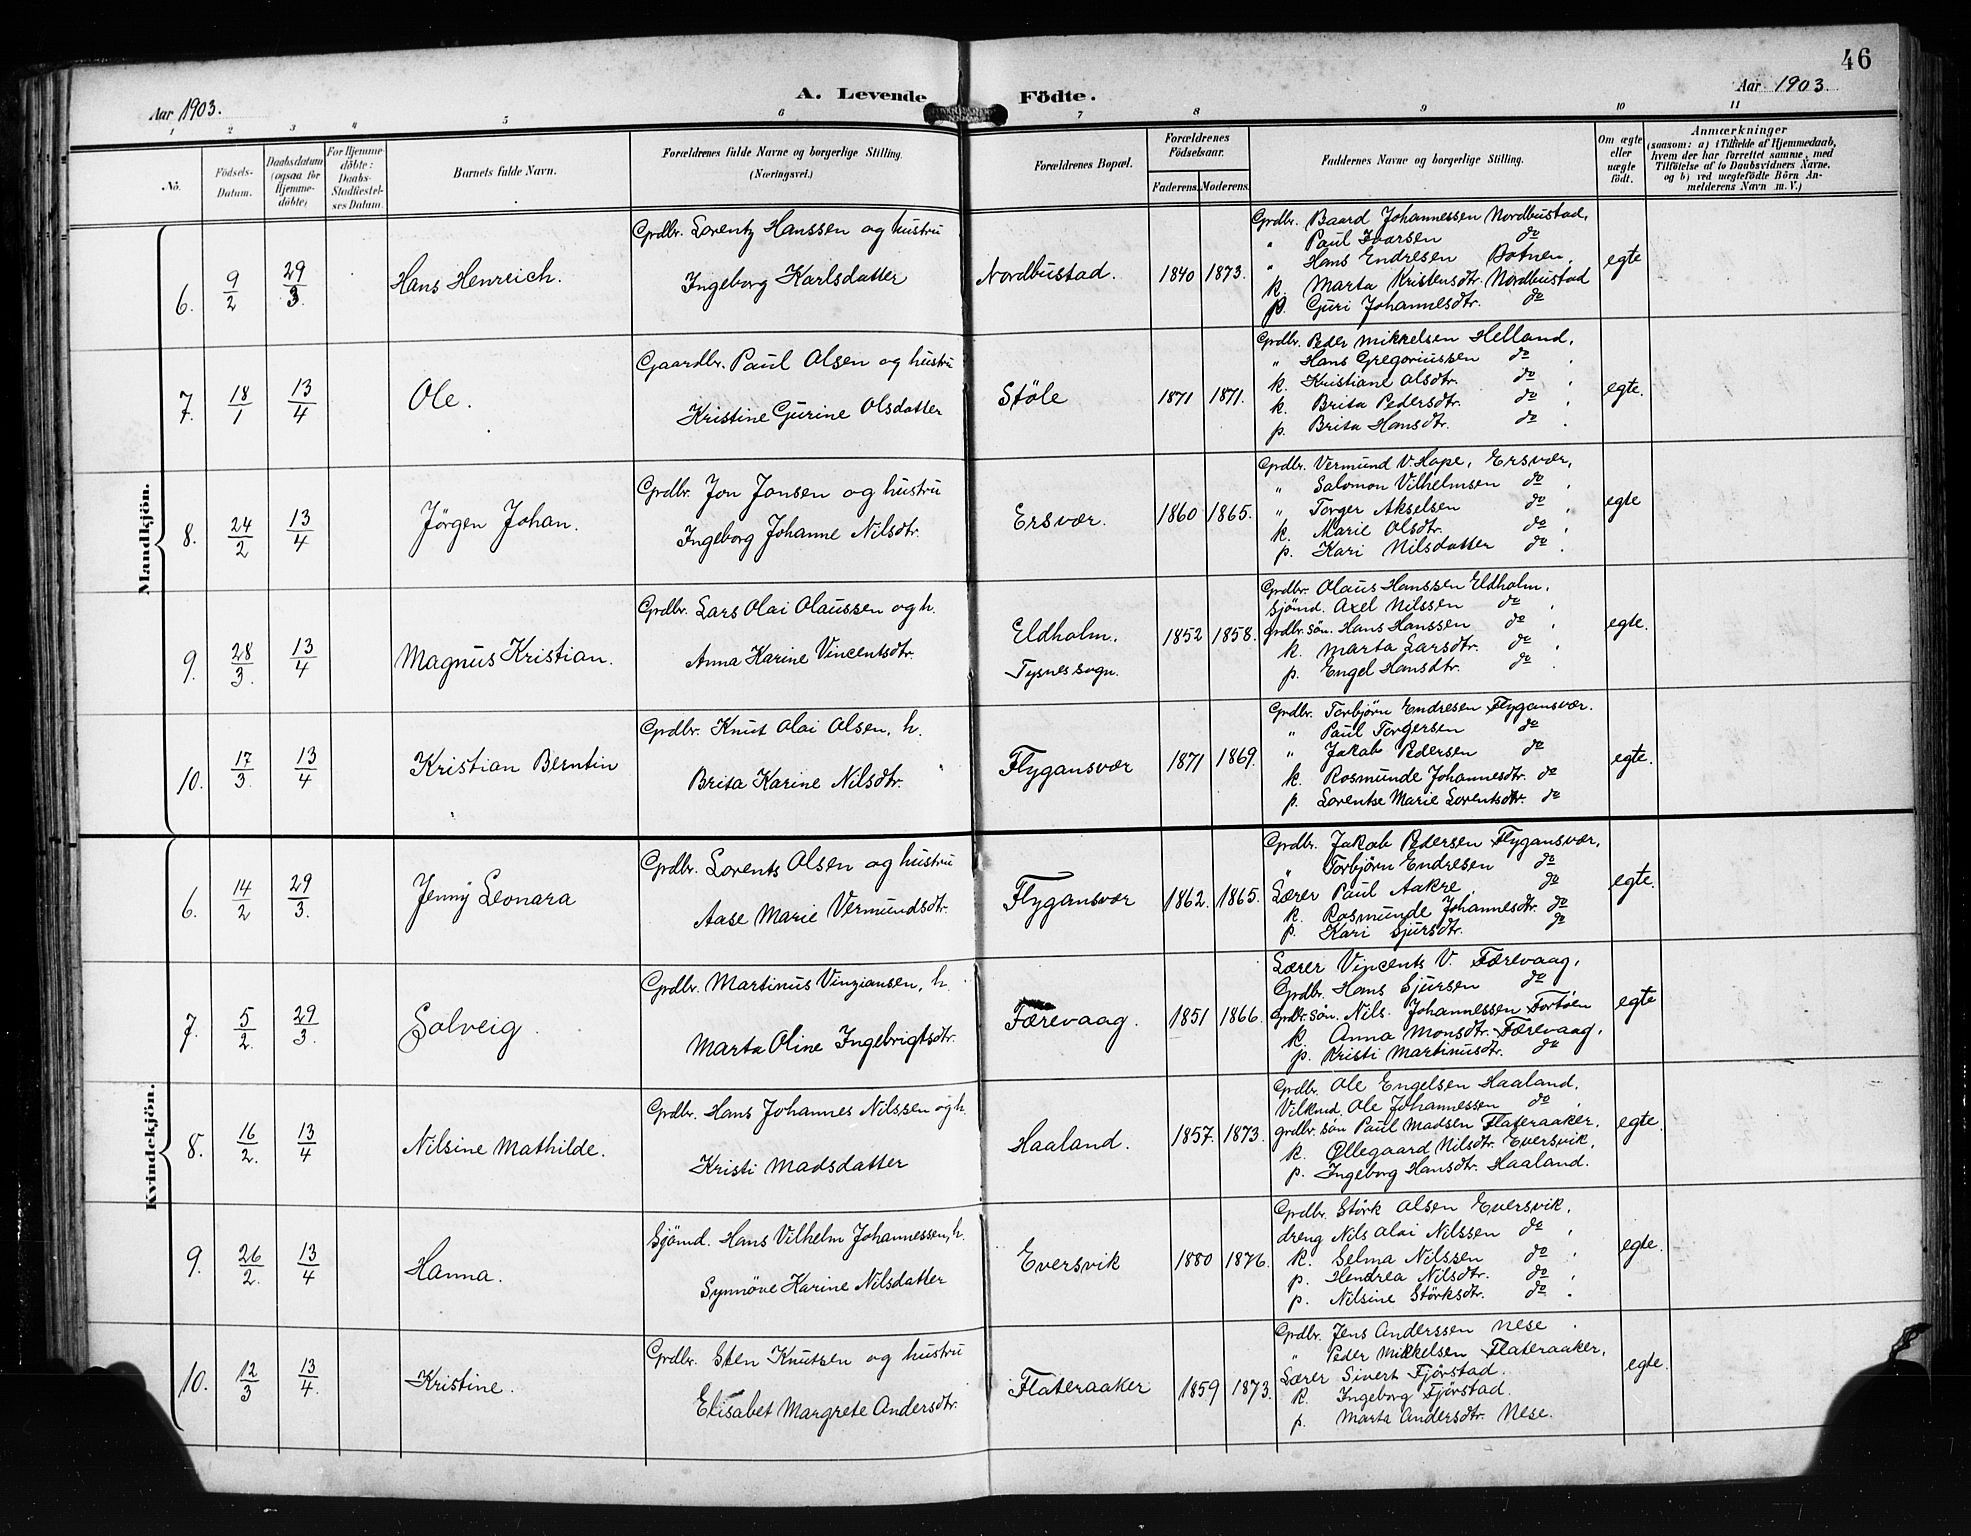 46
Aar 1903.
A. Levende Födte.
Aar 1903
1 2 3 4 5 6 7 8 9 10 11
No.
Födsels-Datum.
Daabsdatum (ogsaa for Hjemmedöbte)
For Hjemmedöbte: Daabs-Stadfæstelses Datum.
Barnets fulde Navn.
Forældrenes fulde Navne og borgerlige Stilling. (Næringsvei.)
Forældrenes Bopæl.
Forældrenes Födselsaar.
Faderens. Moderens.
Faddernes Navne og borgerlige Stilling.
Om ægte eller uægte födt.
Anmærkninger
(saasom: a) i Tilfælde af Hjemmedaab,
hvem der har forrettet samme, med
Tilföielse af to Daabsvidners Navne,
og b) ved uægtefödte Börn Anmelderens Navn m. V.)
Mandkjön.
6. 9/2 29/3 Hans Henreich.
Grdbr. Lorentz Hanssen og hustru
Ingeborg Karlsdatter
Nordbustad. 1840 1873.
Grdbr. Baard Johannessen Nordbustad,
" Paul Ivarsen do
" Hans Endresen Botnen,
k. Marta Kristensdtr. Nordbustad
p. Guri Johannesdtr. do
egte
7. 18/1 13/4 Ole.
Gaardbr. Paul Olsen og hustru
Kristine Gurine Olsdatter
Støle 1871 1871.
Grdbr. Peder Mikkelsen Helland,
" Hans Gregoriussen do
k. Kristiane Olsdtr. do
k. Brita Pedersdtr. do
p. Brita Hansdtr. do
egte.
8. 24/2 13/4 Jörgen Johan.
Grdbr. Jon Jonsen og hustru
Ingeborg Johanne Nilsdtr.
Ersvær. 1860 1865.
Grdbr. Vermund V. Hope, Ersvær,
" Salomon Vilhelmsen do
" Torger Akselsen do
k. Marie Olsdtr. do
p. Kari Nilsdatter do
egte
9. 28/3. 13/4 Magnus Kristian.
Grdbr. Lars Olai Olaussen og h.
Anna Karine Vincentsdtr.
Eldholm.
Tysnes sogn.
1852 1858.
Grdbr. Olaus Hanssen Eldholm,
Sjömd. Axel Nilssen do
grdbr. søn. Hans Hanssen do
k. Marta Larsdtr. do
p. Engel Hansdtr. do
egte.
10. 17/3 13/4 Kristian Berntin
Grdbr. Knut Olai Olsen, h.
Brita Karine Nilsdtr.
Flygansvær 1871 1869.
Grdbr. Torbjörn Endresen Flygansvær.
" Paul Torgersen do
" Jakob Pedersen do
k. Rosmunde Johannesdtr. do
p. Lorentse Marie Lorentsdtr. do
egte.
Kvindekjön.
6. 14/2 29/3. Jenny Leonara
Grdbr. Lorents Olsen og hustru
Aase Marie Vermundsdtr.
Flygansvær 1862. 1865.
Grdbr. Jakob Pedersen Flygansvær,
" Torbjörn Endresen do
Lærer Paul Aakre. do
k. Rosmunde Johannesdtr. do
p. Kari Sjursdtr. do
egte.
7. 5/2. 29/3. Solveig.
Grdbr. Martinus Vinziansen, h.
Marta Oline Ingebrigtsdtr.
Færevaag. 1851 1866.
Lærer Vincents V. Færevaag,
Grdbr. Hans Sjursen do
Grdbr. søn. Nils Johannessen Fortöen
k. Anna Monsdtr. Færevaag,
p. Kristi Martinusdtr. do
egte
8. 16/2. 13/4 Nilsine Mathilde.
Grdbr. Hans Johannes Nilssen og h.
Kristi Madsdatter
Haaland. 1857. 1873.
Grdbr. Ole Engelsen Haaland,
Vilkmd. Ole Johannessen do,
grdbr. søn Paul Madsen Flateraaker,
k. Øllegaard Nilsdtr. Eversvik,
p. Ingeborg Hansdtr. Haaland.
egte.
9. 26/2. 13/4 Hanna.
Sjömd. Hans Vilhelm Johannessen, h.
Synnöve Karine Nilsdatter
Eversvik 1880 1876.
Grdbr. Störk Olsen Eversvik,
dreng Nils Olai Nilssen do,
k. Selma Nilssen do
p. Hendrea Nilsdtr. do,
p. Nilsine Störksdtr. do.
egte.
10. 12/3 13/4. Kristine.
Grdbr. Sten Knutsen og hustru
Elisabet Margrete Andersdtr.
Flateraaker 1859 1873.
Grdbr. Jens Anderssen Nese.
" Peder Mikkelsen Flateraaker,
Lærer Sivert Fjörstad.
k. Ingeborg Fjörstad.
p. Marta Andersdtr. Nese.
egte.